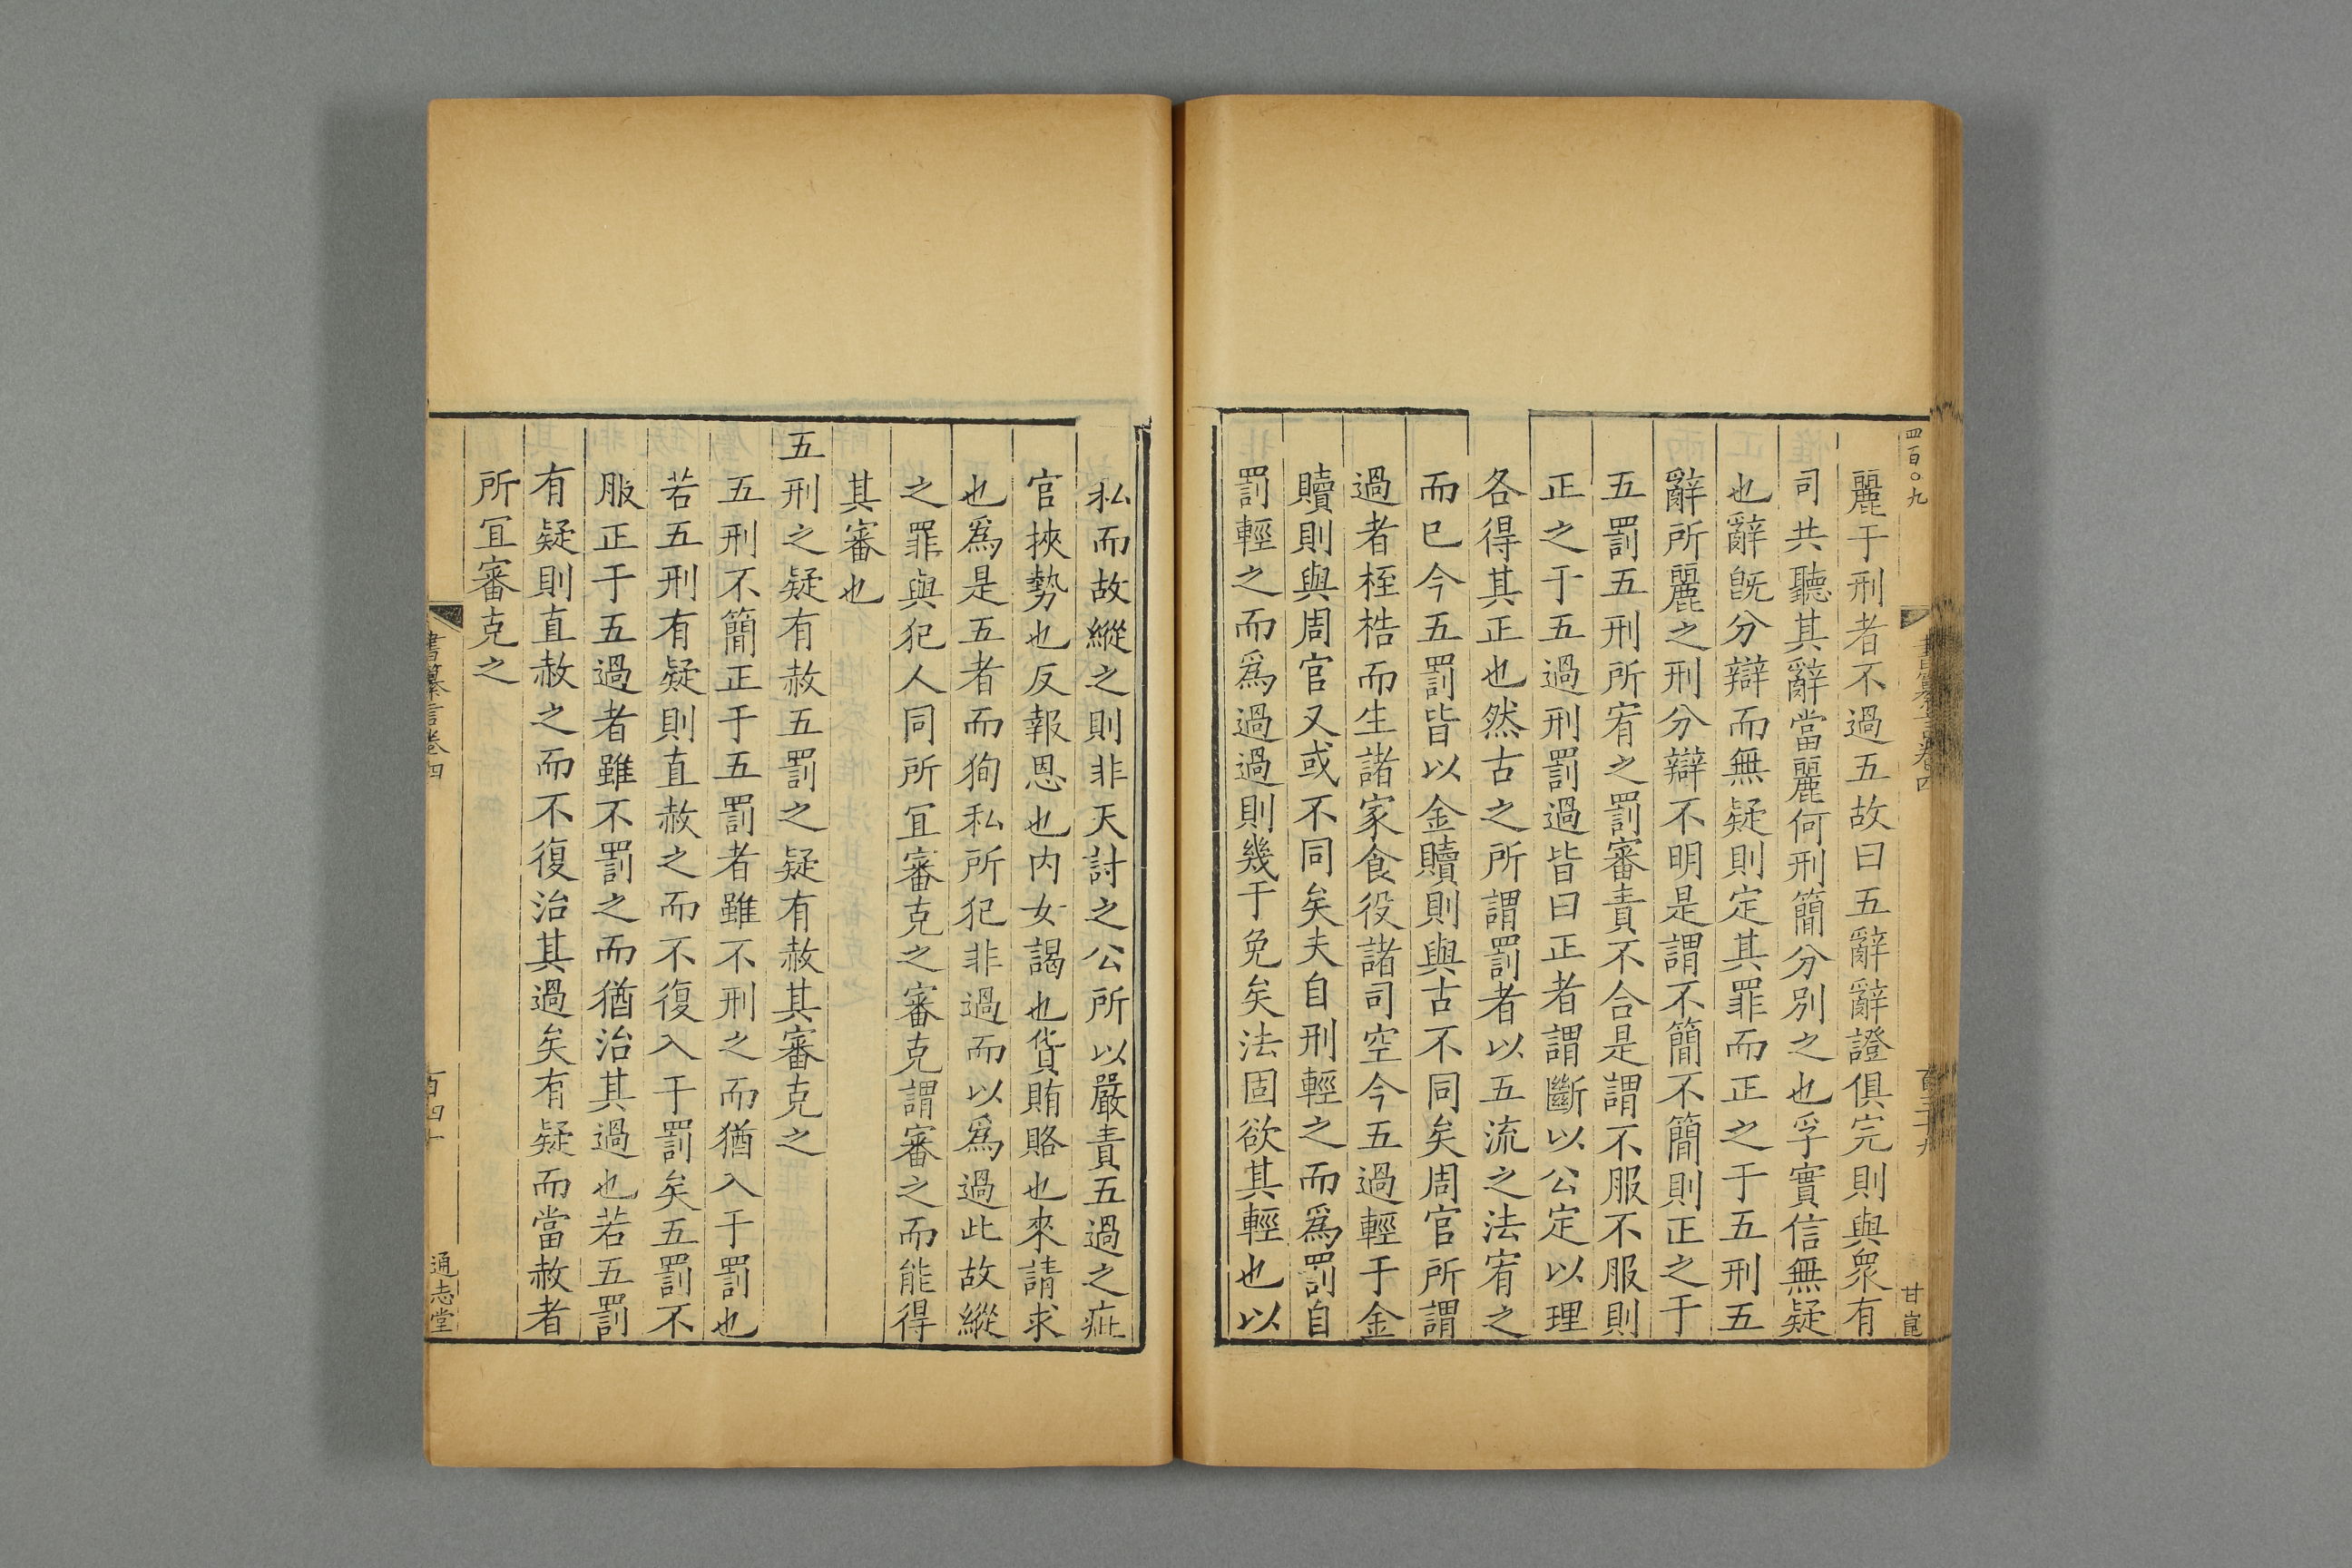 四百〇九
麗于刑者不過五故曰五辭辭證俱完則與衆有
司共聽其辭當麗何刑簡分別之也孚實信無疑
也辭旣分辯而無疑則定其罪而正之于五刑五
辭所麗之刑分辯不明是謂不簡不簡則正之于
五罰五刑所宥之罰審責不合是謂不服不服則
正之于五過刑罰過皆曰正者謂斷以公定以理
各得其正也然古之所謂罰者以五流之法宥之
而已今五罰皆以金贖則與古不同矣周官所謂
過者桎梏而生諸家食役諸司空今五過輕于金
贖則與周官又或不同矣夫自刑輕之而爲罰自
罰輕之而爲過過則幾于免矣法固欲其輕也以
私而故縱之則非天討之公所以嚴責五過之疵
官挾勢也反報恩也内女謁也貨賄賂也來請求
也爲是五者而狥私所犯非過而以爲過此故縱
之罪與犯人同所宜審克之審克謂審之而能得
其審也
五刑之疑有赦五罰之疑有赦其審克之
五刑不簡正于五罰者雖不刑之而猶入于罰也
若五刑有疑則直赦之而不復入于罰矣五罰不
服正于五過者雖不罰之而猶治其過也若五罰
有疑則直赦之而不復治其過矣有疑而當赦者
所宜審克之
書纂言卷四
百四十
通志堂